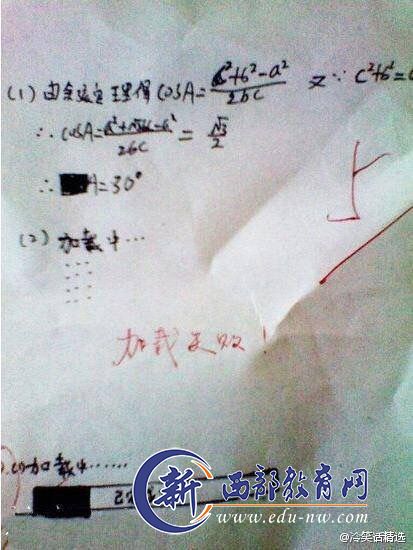 (1) 由余弦定理得 COSA=\frac{c²+b²-a²}{2bc} 又∵ c²+b²=
∴ COSA=\frac{a²+√3bc-a²}{2bc}=\frac{√3}{2}
∴ A=30°
5
(2) 加载中…
加载失败!
(1)加载中……
新 西部教育网
www.edu-nw.com
@冷笑话精选